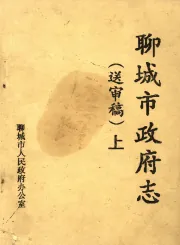 聊城市政府志
（送审稿）上
聊城市人民政府办公室